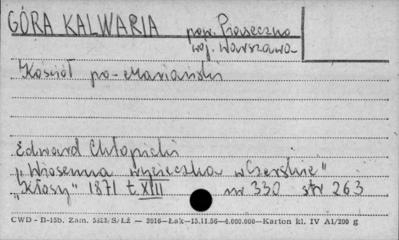 GÓRA KALWARIA pow. Piaseczno
woj. Warszawa
Kościół po-Mariański
Edward Chłopicki
"Wiosenna wycieczka w Czerskie"
"Kłosy" 1871 t. XIII nr 330 str 263
CWD - D-15b. Zam. 5323/S/Lż — 2016—Łak—15.11.56—4.000.000—Karton kl. IV A1/200 g